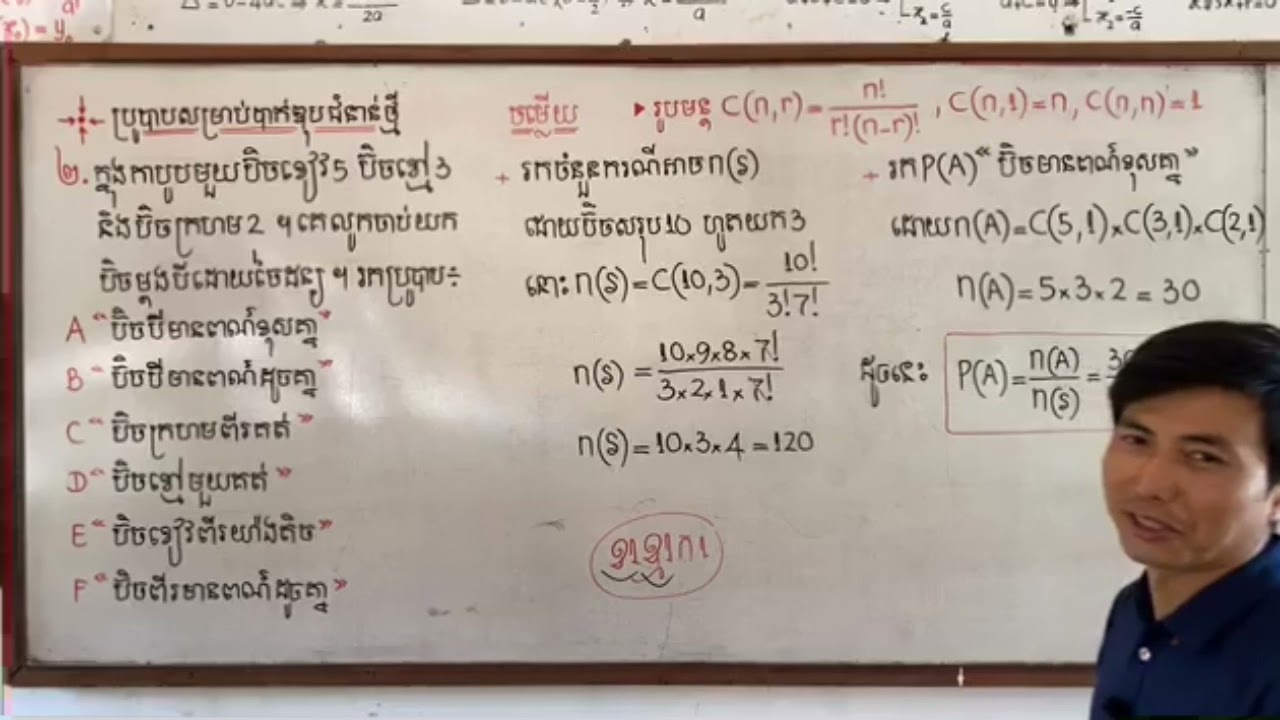 ប្រូបាបសម្រាប់បាក់ឌុបជំនាន់ថ្មី
២. ក្នុងកាបូបមួយប៊ិចខៀវ 5 ប៊ិចខ្មៅ 3
និងប៊ិចក្រហម 2 ។ គេលូកចាប់យក
ប៊ិចម្តងបីដោយចៃដន្យ ។ រកប្រូបាប÷
A "ប៊ិចបីមានពណ៌ខុសគ្នា"
B "ប៊ិចបីមានពណ៌ដូចគ្នា"
C "ប៊ិចក្រហមពីរគត់"
D "ប៊ិចខ្មៅមួយគត់"
E "ប៊ិចខៀវពីរយ៉ាងតិច"
F "ប៊ិចពីរមានពណ៌ដូចគ្នា"
ចម្លើយ ▸ រូបមន្ត C(n,r) = n!/r!(n-r)! , C(n,1)=n, C(n,n)=1
+ រកចំនួនករណីអាច n(S)
ដោយប៊ិចសរុប 10 ហូតយក 3
នោះ n(S) = C(10,3) = 10!/3!7!
n(S) = 10×9×8×7!/3×2×1×7!
n(S) = 10×3×4 = 120
+ រក P(A) "ប៊ិចមានពណ៌ខុសគ្នា"
ដោយ n(A) = C(5,1)×C(3,1)×C(2,1)
n(A) = 5×3×2 = 30
ដូចនេះ P(A) = n(A)/n(S) =